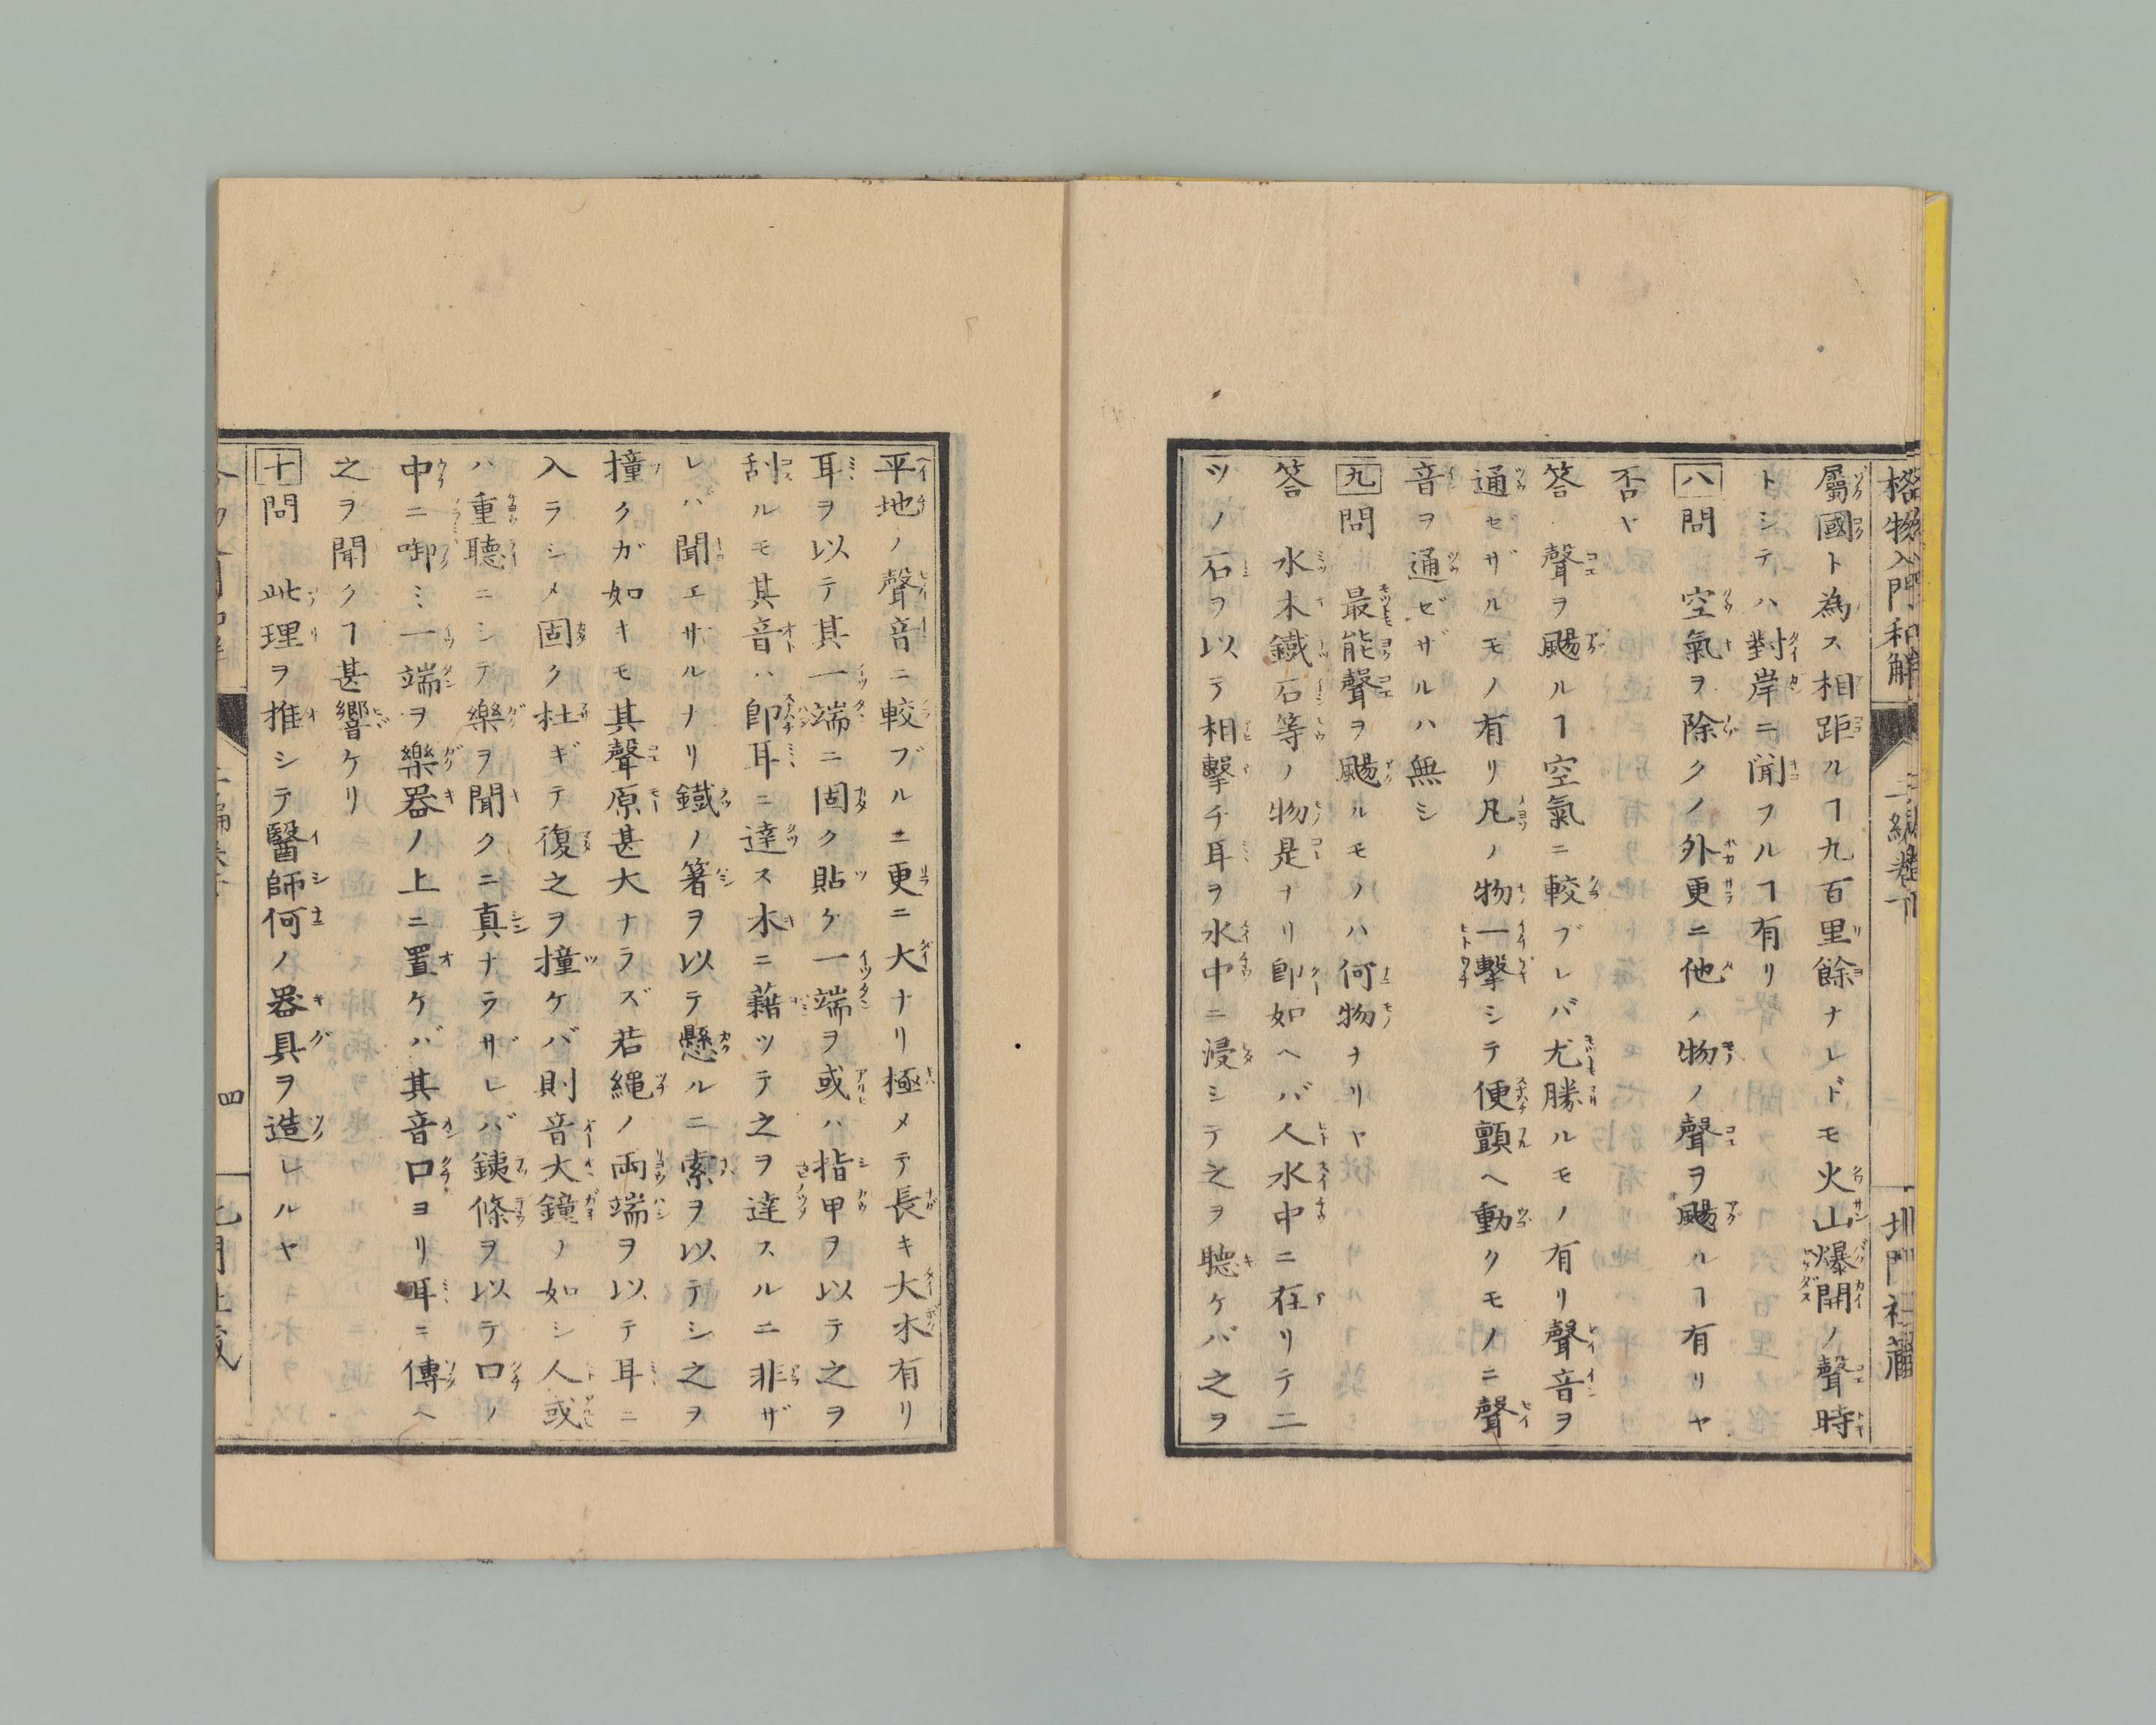 格物入門和解
二編卷下
北門社藏
屬國ト為ス相距ルヿ九百里餘ナレドモ火山爆開ノ聲時
トシテハ對岸ニ聞フルヿ有リ
八問　空氣ヲ除クノ外更ニ他ノ物ノ聲ヲ颺ルヿ有リヤ
否ヤ
答　聲ヲ颺ルヿ空氣ニ較ブレバ尤勝ルモノ有リ聲音ヲ
通セザルモノ有リ凡ノ物一擊シテ便顫ヘ動クモノニ聲
音ヲ通ゼザルハ無シ
九問　最能聲ヲ颺ルモノハ何物ナリヤ
答　水木鐵石等ノ物是ナリ卽如ヘバ人水中ニ在リテ二
ツノ石ヲ以テ相擊チ耳ヲ水中ニ浸シテ之ヲ聽ケバ之ヲ
平地ノ聲音ニ較ブルニ更ニ大ナリ極メテ長キ大木有リ
耳ヲ以テ其一端ニ固ク貼ケ一端ヲ或ハ指甲ヲ以テ之ヲ
刮ルモ其音ハ卽耳ニ達ス木ニ藉ツテ之ヲ達スルニ非ザ
レバ聞エザルナリ鐵ノ箸ヲ以テ懸ルニ索ヲ以テシ之ヲ
撞クガ如キモ其聲原甚大ナラズ若繩ノ兩端ヲ以テ耳ニ
入ラシメ固ク杜ギテ復之ヲ撞ケバ則音大鐘ノ如シ人或
ハ重聽ニシテ樂ヲ聞クニ真ナラザレバ銕條ヲ以テ口ノ
中ニ啣ミ一端ヲ樂器ノ上ニ置ケバ其音口ヨリ耳ニ傳ヘ
之ヲ聞クヿ甚響ケリ
十問　此理ヲ推シテ醫師何ノ器具ヲ造レルヤ
四